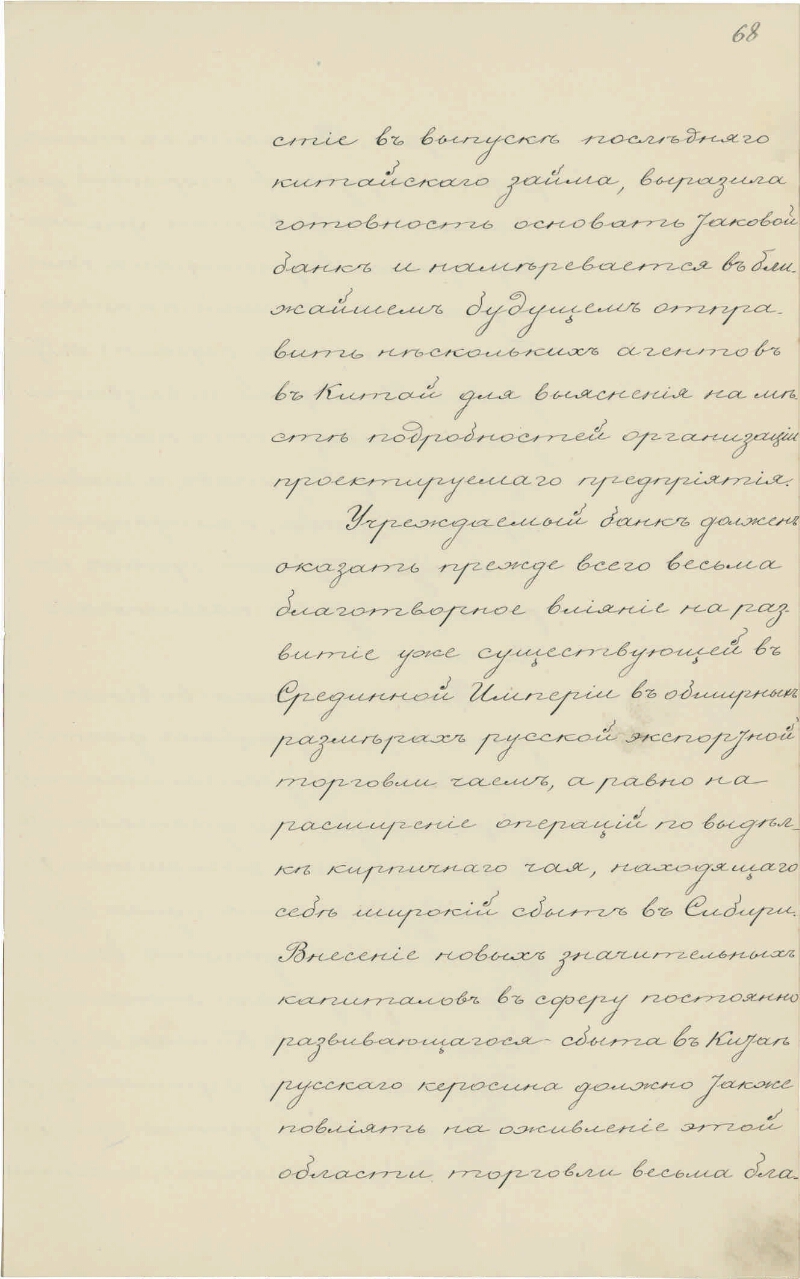 68
стіе въ выпускѣ послѣдняго
китайскаго займа, выразила
готовность основать таковой
банкъ и намѣревается въ бли-
жайшемъ будущемъ отпра-
вить нѣсколькихъ агентовъ
въ Китай для выясненія на мѣ-
стѣ подробностей организаціи
проектируемаго предпріятія.
Учреждаемый банкъ долженъ
оказать прежде всего весьма
благотворное вліяніе на раз-
витіе уже существующей въ
Срединной Имперіи въ обширныхъ
размѣрахъ русской экспортной
торговли чаемъ, а равно на
расширеніе операцій по выдѣл-
кѣ кирпичнаго чая, находящаго
себѣ широкій сбытъ въ Сибири.
Внесеніе новыхъ значительныхъ
капиталовъ въ сферу постоянно
развивающагося сбыта въ Китаѣ
русскаго керосина должно также
повліять на оживленіе этой
области торговли весьма бла-